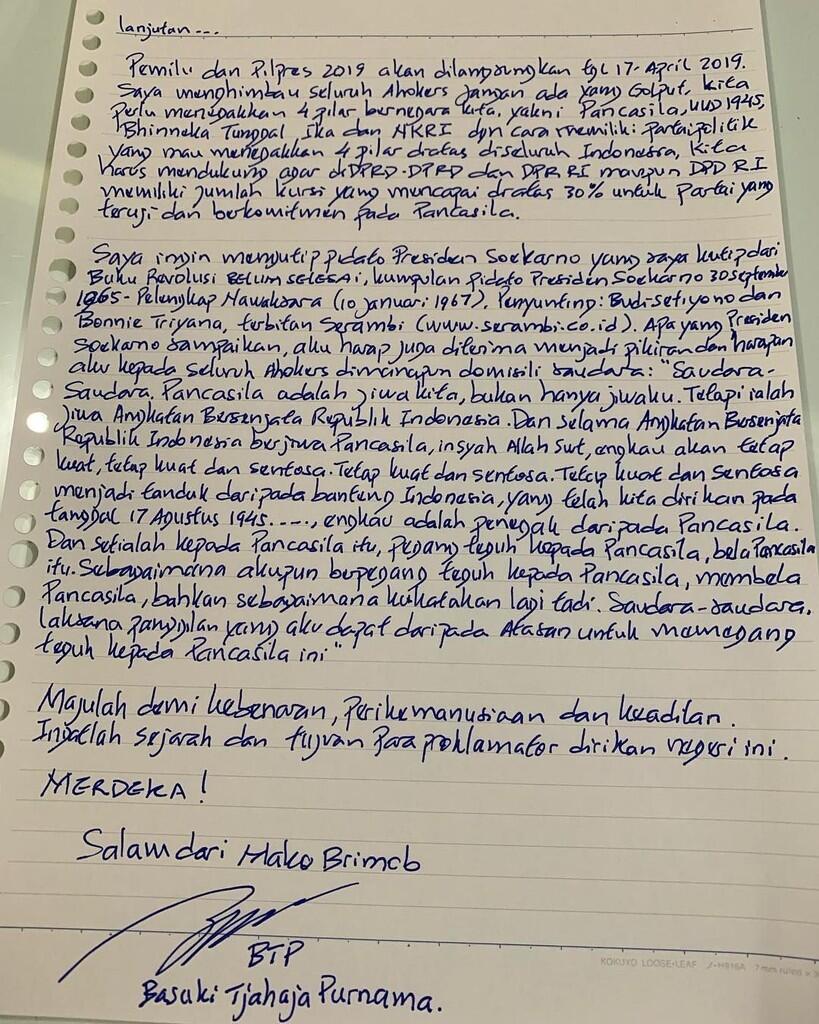 lanjutan...
Pemilu dan Pilpres 2019 akan dilangsungkan tgl 17-April 2019.
Saya menghimbau seluruh Ahokers jangan ada yang Golput, kita
Perlu menegakkan 4 pilar bernegara kita, yakni Pancasila, UUD 1945,
Bhinneka Tunggal Ika dan NKRI dgn cara memilih partai politik
yang mau menegakkan 4 pilar diatas diseluruh Indonesia, kita
harus mendukung agar di DPRD-DPRD dan DPR RI maupun DPD RI
memiliki jumlah kursi yang mencapai diatas 30% untuk Partai yang
teruji dan berkomitmen pada Pancasila.
Saya ingin mengutip pidato Presiden Soekarno yang saya kutip dari
Buku Revolusi BELUM SELESAI, kumpulan pidato Presiden Soekarno 30 September
1965- Pelengkap Nawaksara (10 januari 1967), Penyunting: Budi-setiyono dan
Bonnie Triyana, terbitan Serambi (www.serambi.co.id). Apa yang Presiden
Soekarno sampaikan, aku harap juga diterima menjadi pikiran dan harapan
aku kepada seluruh Ahokers dimanapun domisili saudara: "Saudara-
Saudara. Pancasila adalah jiwa kita, bukan hanya jiwaku. Tetapi ialah
jiwa Angkatan Bersenjata Republik Indonesia. Dan selama Angkatan Bersenjata
Republik Indonesia berjiwa Pancasila, insyah Allah Swt, engkau akan tetap
kuat, tetap kuat dan sentosa. Tetap kuat dan sentosa. Tetap kuat dan sentosa
menjadi tanduk daripada banteng Indonesia, yang telah kita dirikan pada
tanggal 17 Agustus 1945....., engkau adalah penegak daripada Pancasila.
Dan setialah kepada Pancasila itu, pegang teguh kepada Pancasila, bela Pancasila
itu. Sebagaimana akupun berpegang teguh kepada Pancasila, membela
Pancasila, bahkan sebagaimana kukatakan lagi tadi. Saudara-saudara.
laksana panggilan yang aku dapat daripada Atasan untuk memegang
teguh kepada Pancasila ini"
Majulah demi kebenaran, Perikemanusiaan dan keadilan.
Ingatlah sejarah dan tujuan Para proklamator dirikan negeri ini.
MERDEKA!
Salam dari Mako Brimob
BTP
Basuki Tjahaja Purnama.
KOKUYO LOOSE-LEAF
7 mm ruled